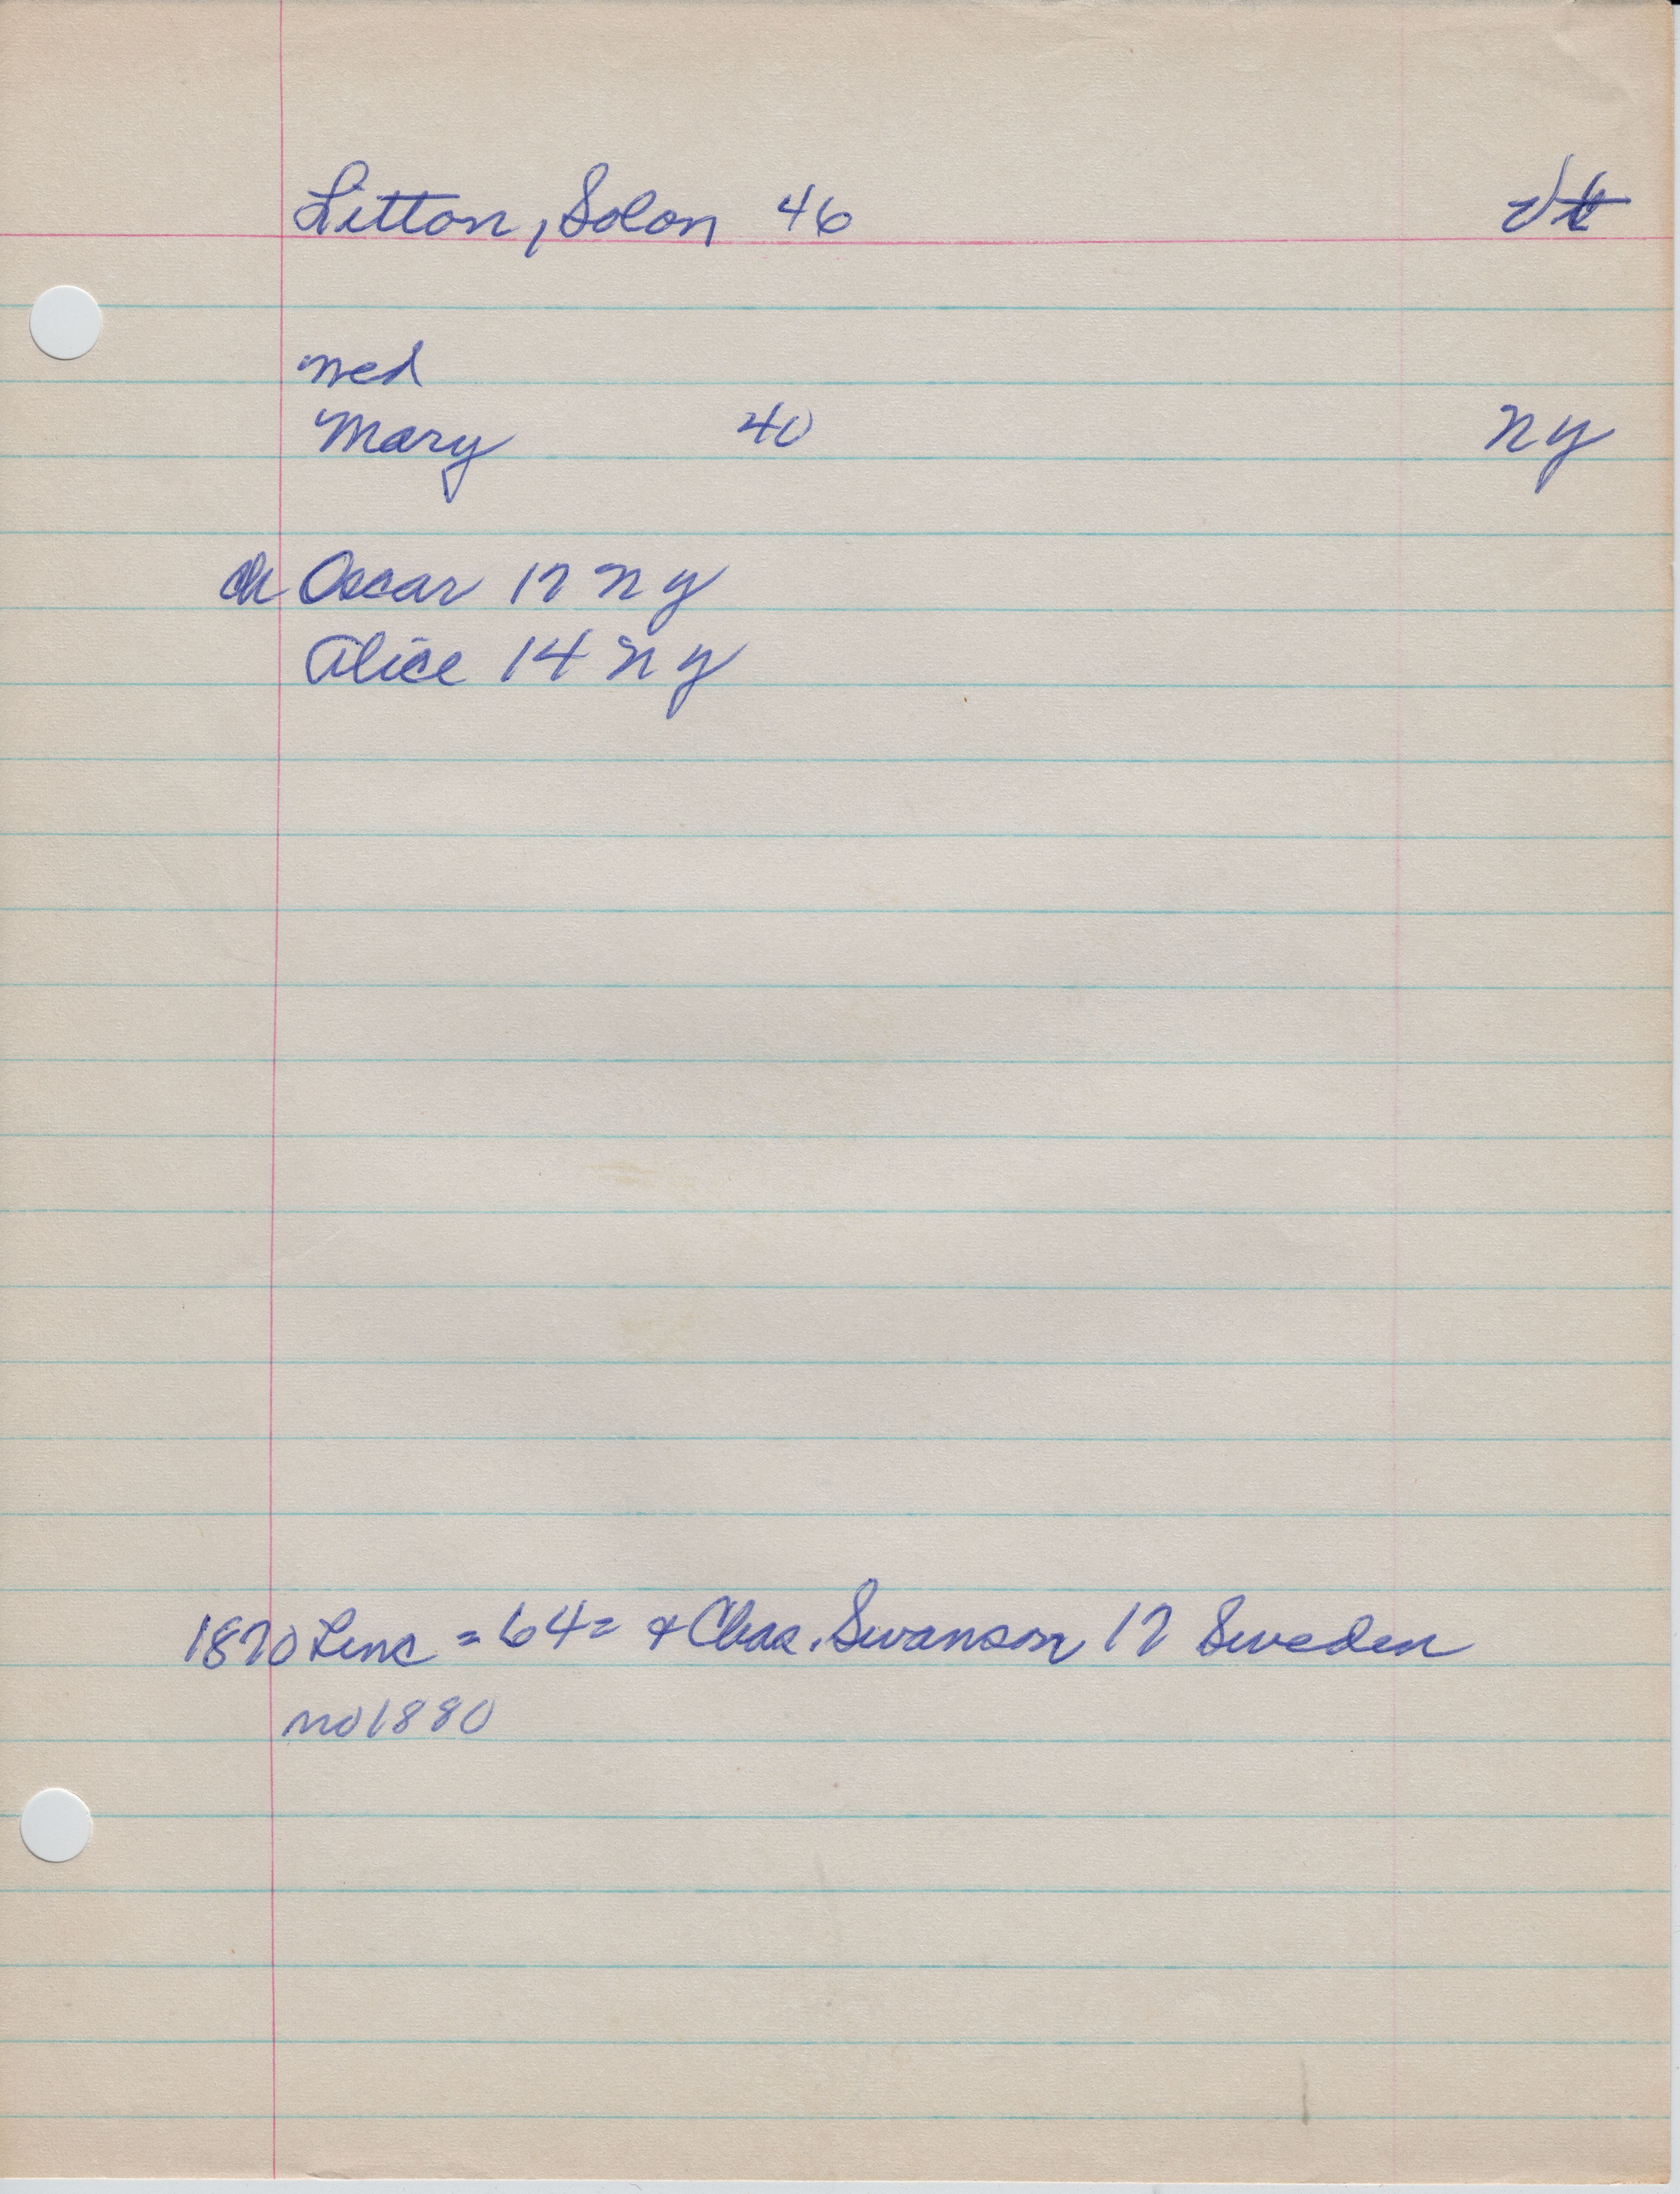 Litton, Solon 46 Vt
med
Mary 40 ny
ch Oscar 17 ny
Alice 14 ny
1870 Linc = 64 = & Chas. Swanson 17 Sweden
no 1880